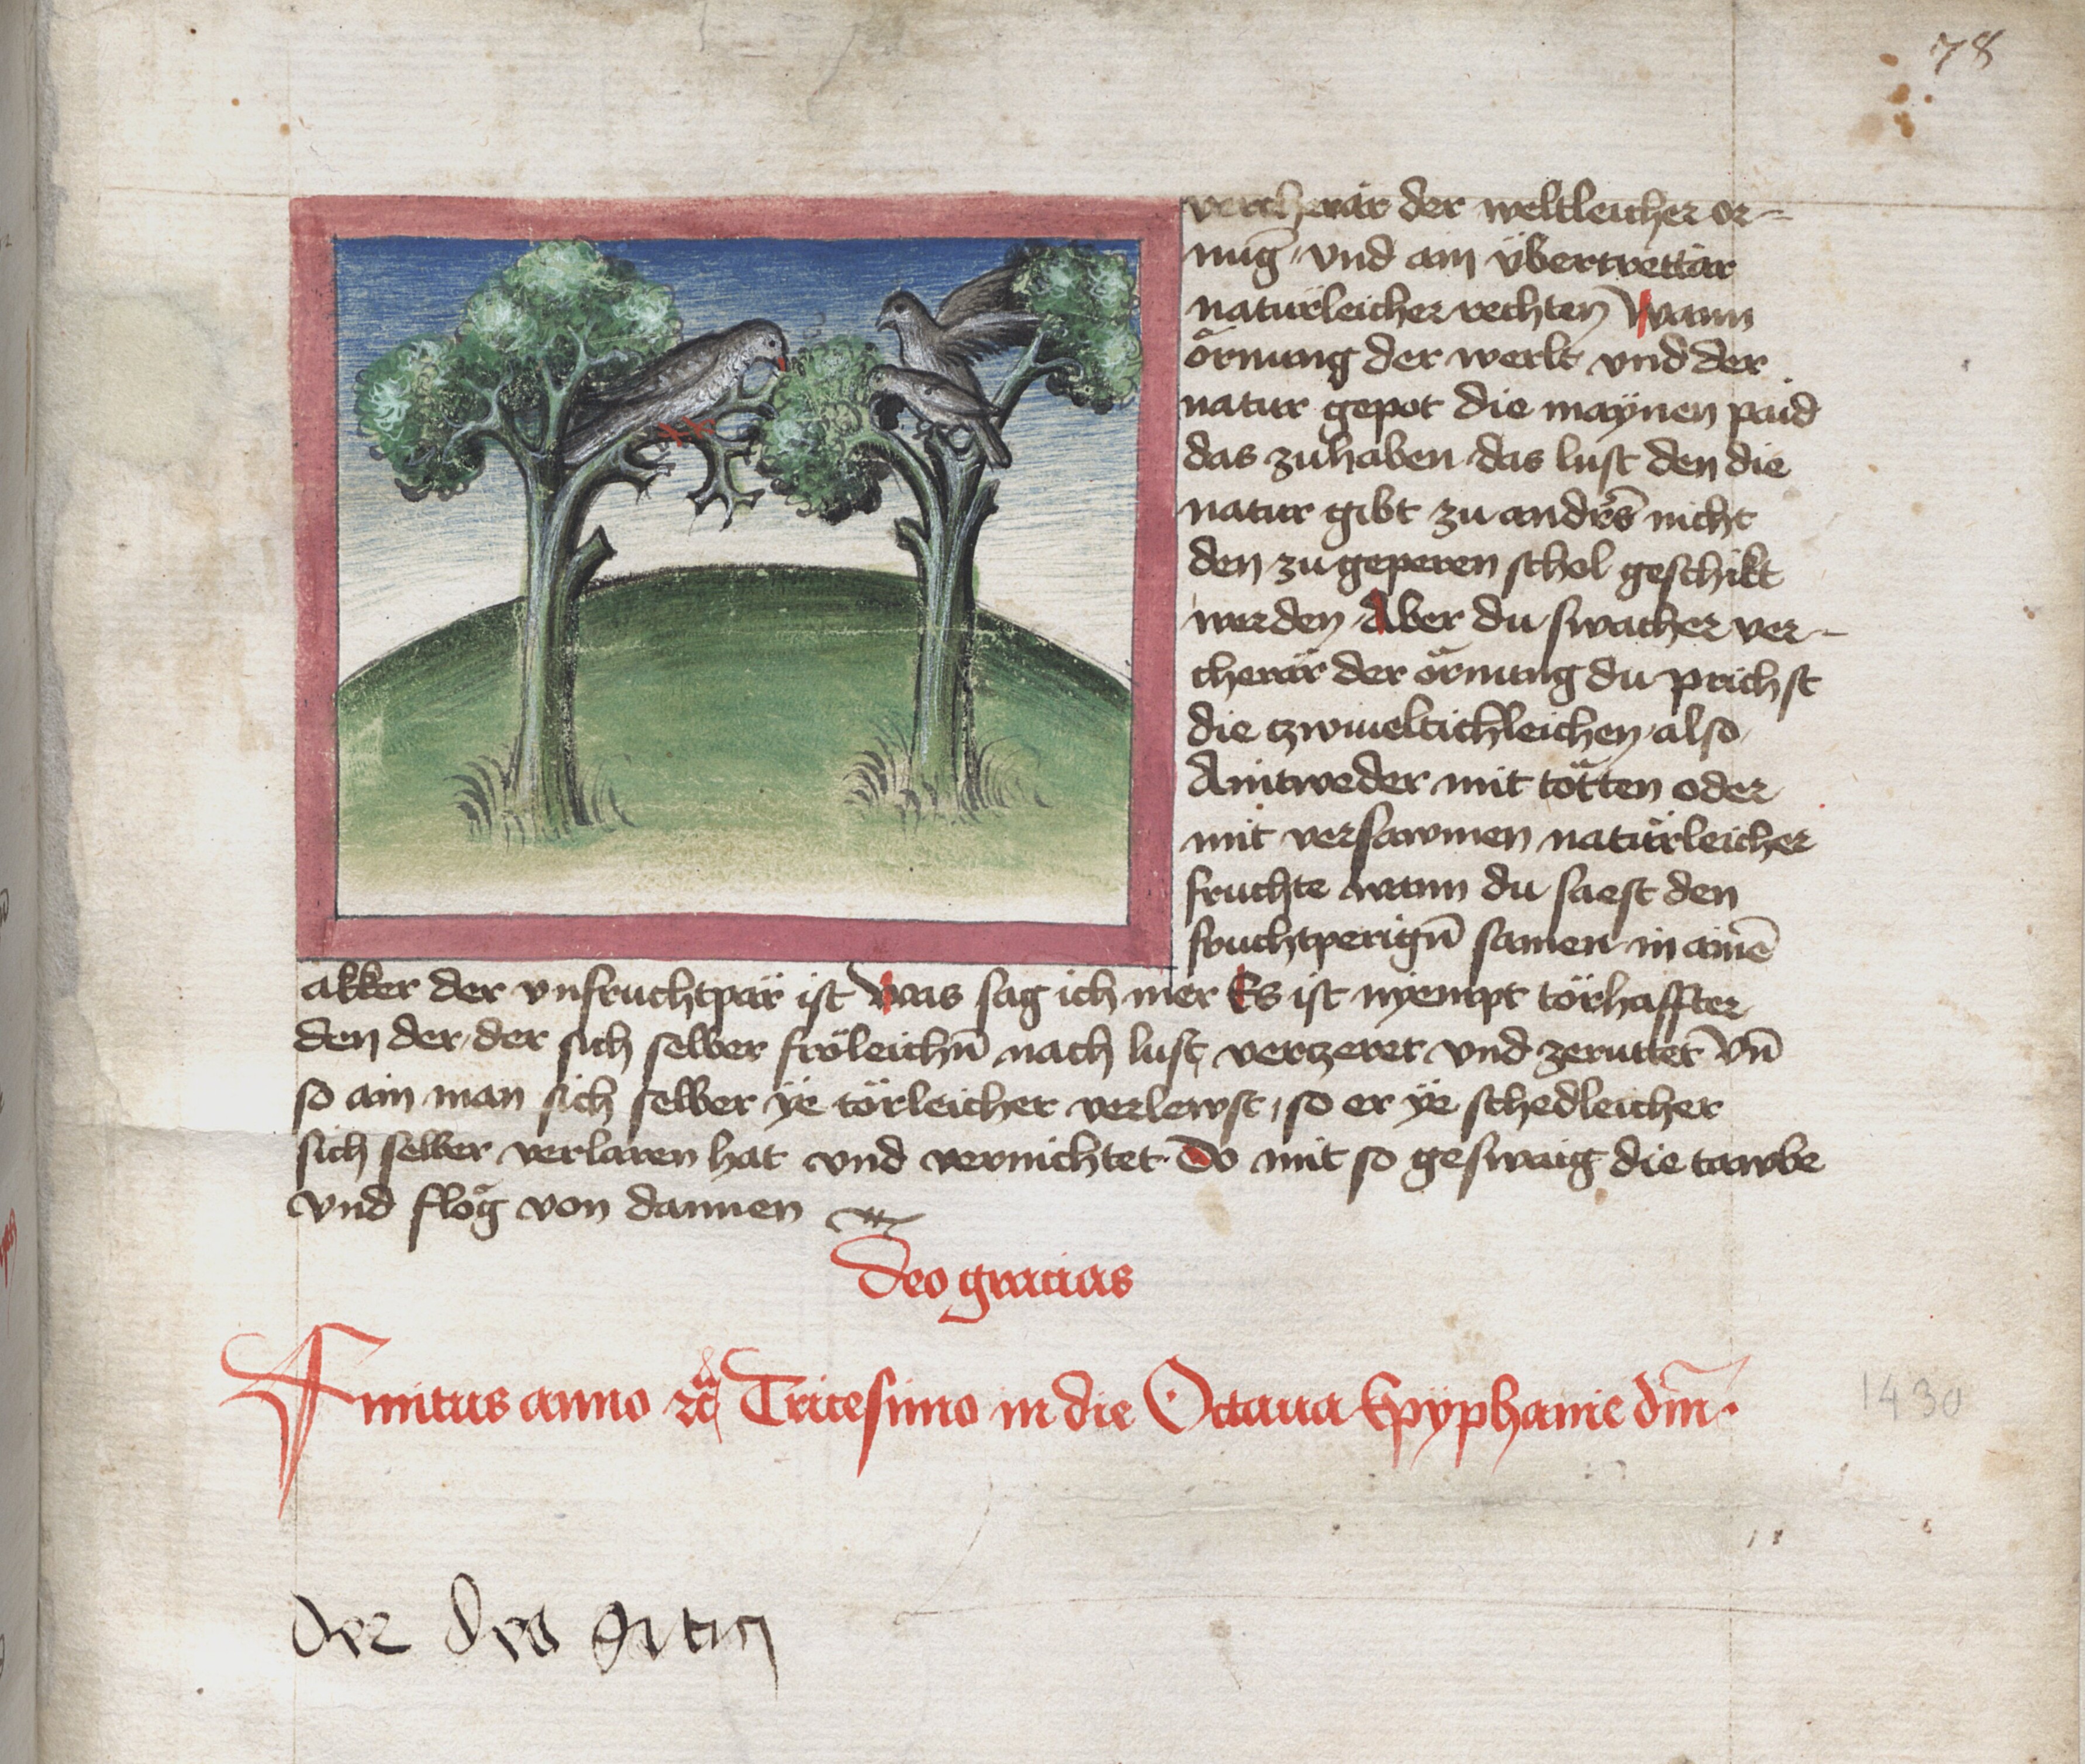 78
vercherär der weltleicher or-
nūg vnd ain übertrettär
natürleicher rechten Wann
örnung der werlt vnd der
natur gepot die maÿnen paid
das zuhaben das lust den die
natur gibt zu andrs̄ nicht
den zu geperen schol geschikt
werden Aber du swacher ver-
cherär der örnung du prichst
die zwiueltichleichen also
Aintweder mit tötten oder
mit versawmen natürleicher
fruchte wann du saest den
fruchtperign̄ samen in ainē
akker der vnfruchtpär ist Was sag ich mer Es ist nyempt törhaffter
den der der sich selber fröleichn̄ nach lust verczeret vnd zeruttet Vn̄
so ain man sich selber ÿe törleicher verlewst so er ÿe schedleicher
sich selber verlaren hat vnd vernichtet Do mit so geswaig die tawbe
vnd flog von dannen
Deo gracias
Finitus anno Tricesimo in die Octaua Epyphanie dm̄
1430
der deo